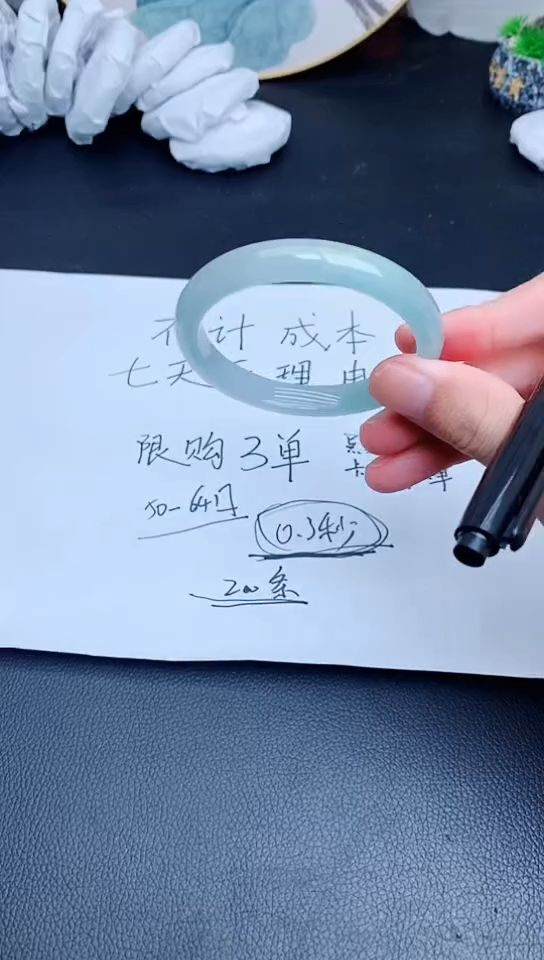 不计 成本
七天 理由
限购3单 点
50-64 卡 单
0.3秒
200条